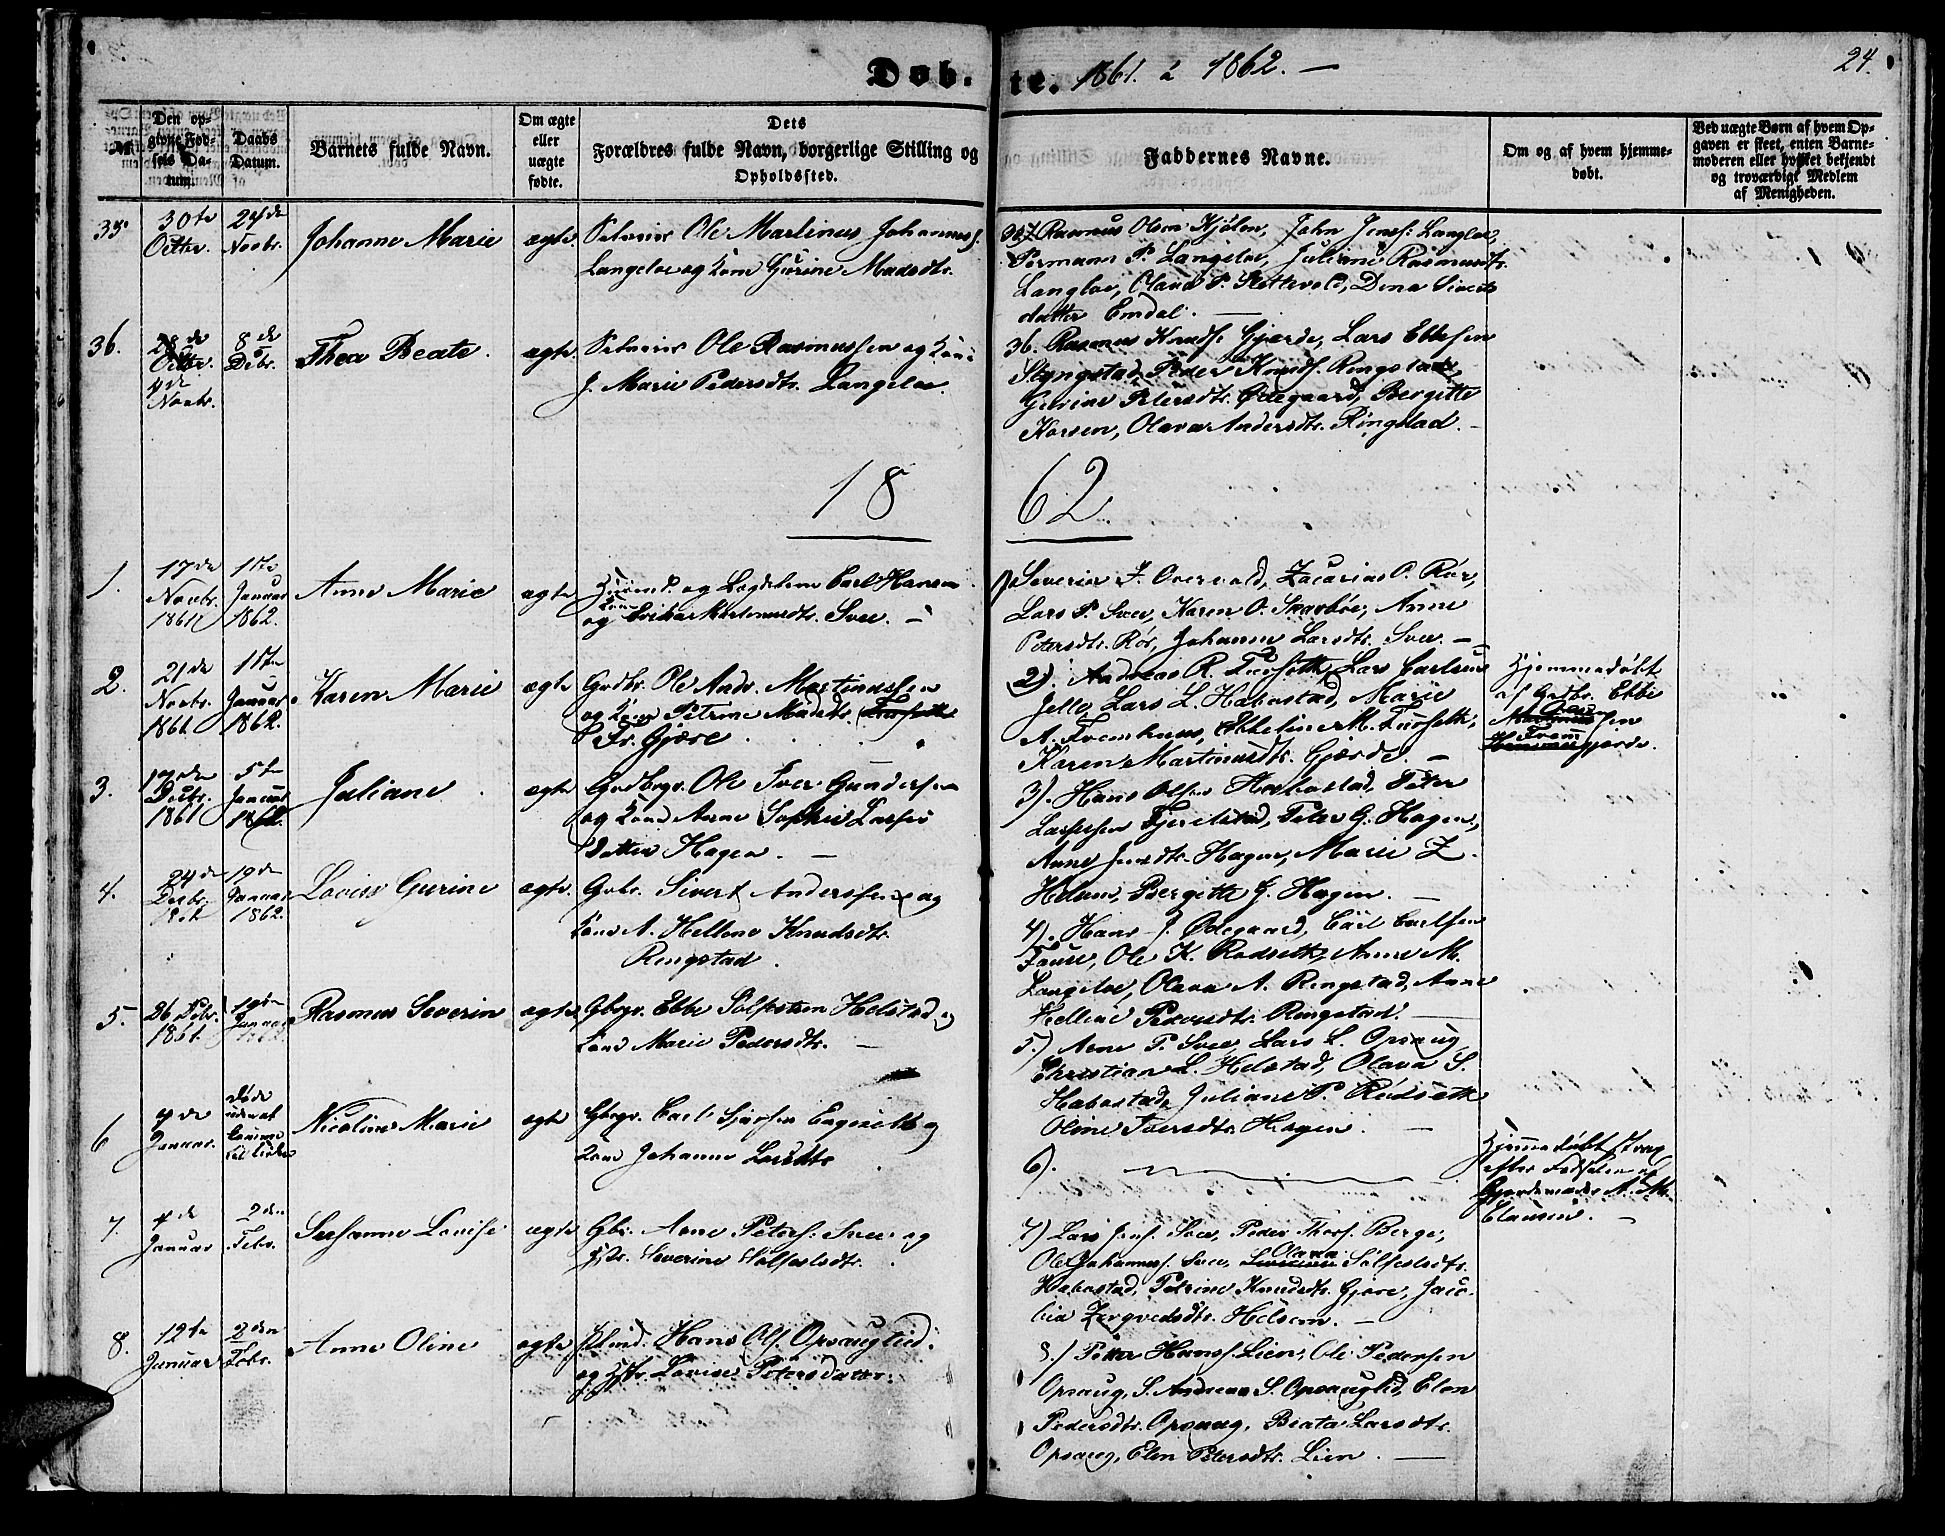 Døb-te. 1861 & 1862. —
24.
No.
Den op-
givne Fød-
sels Da-
tum.
Daabs
Datum.
Barnets fulde Navn.
Om ægte
eller
uægte
fødte.
Dets
Forældres fulde Navn, borgerlige Stilling og
Opholdssted.
Faddernes Navne.
Om og af hvem hjemme-
døbt.
Ved uægte Børn af hvem Op-
gaven er skeet, enten Barne-
moderen eller hvilket bekjendt
og troværdigt Medlem
af Menigheden.
35
30te
Octbr.
24de
Novbr.
Johanne Marie
ægte
Selveier Ole Martinus Johanness.
Langeloe og Kone Gurine Madsdtr.
Rasmus Olsen Kjølen, John Jenss. Langloe,
Permann P. Langeloe, Juliane Rasmusdtr.
Langloe, Olava P. Slettevold, Dena Siverts
datter Emdal. —
36.
28de
Octbr.
4de
Novbr.
8de
Debr.
Thea Beate.
ægte
Selveier Ole Rasmussen og Kone
J. Marie Pedersdtr. Langeloe.
36. Rasmus Knuds. Gjærde, Lars Ebbesen
Slyngstad, Peder Knuds. Ringstad,
Gurine Petersdtr. Ødegaard, Bergitte
Korsen, Olava Andersdtr. Ringstad. —
18 62.
1.
17de
Novbr.
1861
1ste
Januar
1862.
Anne Marie
ægte
og Logdelem Carl Hansen
og Kone Martinusdtr. Svee. —
1) Severin J. Overvold, Zacarias O. Rør,
Lars P. Svee, Karen O. Skarbøe, Anne
Petersdtr. Rør, Johanne Larsdtr. Svee. —
2.
21de
Novbr.
1861
1ste
Januar
1862.
Karen Marie
ægte
Grdbr. Ole Andr. Martinussen
og Kone Petrine Madsdtr. Furseth
Fr. Gjære.
2). Andreas R. Furseth, Lars Carlsen
Jelle, Lars L. Habostad, Marie
A. Fremhuus, Ebbeline M. Furseth,
Karen Martinusdtr. Gjærde. —
Hjemmedøbt
af Grdbr. Ebbe
3.
17de
Decbr.
1861
5te
Januar
1862.
Juliane
ægte
Grdbrgr. Ole Iver Gundersen
og Kone Anne Sophie Lasses
datter Hagen. —
3). Hans Olsen Habostad, Peter
Lassesen Fjerdstad, Peter G. Hagen,
Anne Jensdtr. Hagen, Marie Z.
Helsem, Bergitte G. Hagen. —
4.
24de
Decbr.
19de
Januar
1862.
Lovise Gurine
ægte.
Grbr. Sivert Anderssen og
Kone A. Hellene Knudsdtr.
Ringstad.
4). Hans J. Ødegaard, Carl Carlsen
Fause, Ole K. Rødseth, Anne M.
Langeloe, Olava A. Ringstad, Anne
Hellene Pedersdtr. Ringstad. —
5.
26 Debr.
1861.
19de
Januar
1862.
Rasmus Severin
ægte
Gbrgr. Ebbe Sølfestsen Helstad og
Kone Marie Pedersdtr. —
5.) Arne P. Svee, Lars L. Opsaug,
Christian L. Helstad, Olava S.
Habostad, Juliane P. Rødseth
Oline Iversdtr. Hagen. —
6
7de
Januar.
døde
uden at
komme
til Kirke
Nicoline Marie
ægte
Gbrgr. Carl Engeseth og
Kone Johanne Larsdtr.
6).
Hjemmedøbt strax
efter Fødselen af
Gjordemoder A. M.
Clausen. —
7.
7de
Januar
2den
Febr.
Susanne Lovise
ægte
Gbr. Arne Peters. Svee og
Hstr. Severine Sølfestsdtr.
7) Lars Jens. Svee, Peder Thors. Berge,
Ole Johanness. Svee, Olava Sølfestsdtr.
Habostad, Petrine Knudsdtr. Gjøre, Jaco-
bia Helsem. —
8.
12te
Januar
2den
Febr.
Anne Oline
ægte
Hans Ols. Opsauglid.
og Hstr. Lovise Petersdatter.
8.) Petter Hanss. Lien, Ole Pedersen
Opsaug, S. Andreas S. Opsauglid, Elen
Pedersdtr. Opsaug, Beata Larsdtr.
Opsaug, Elen Petersdtr. Lien. —